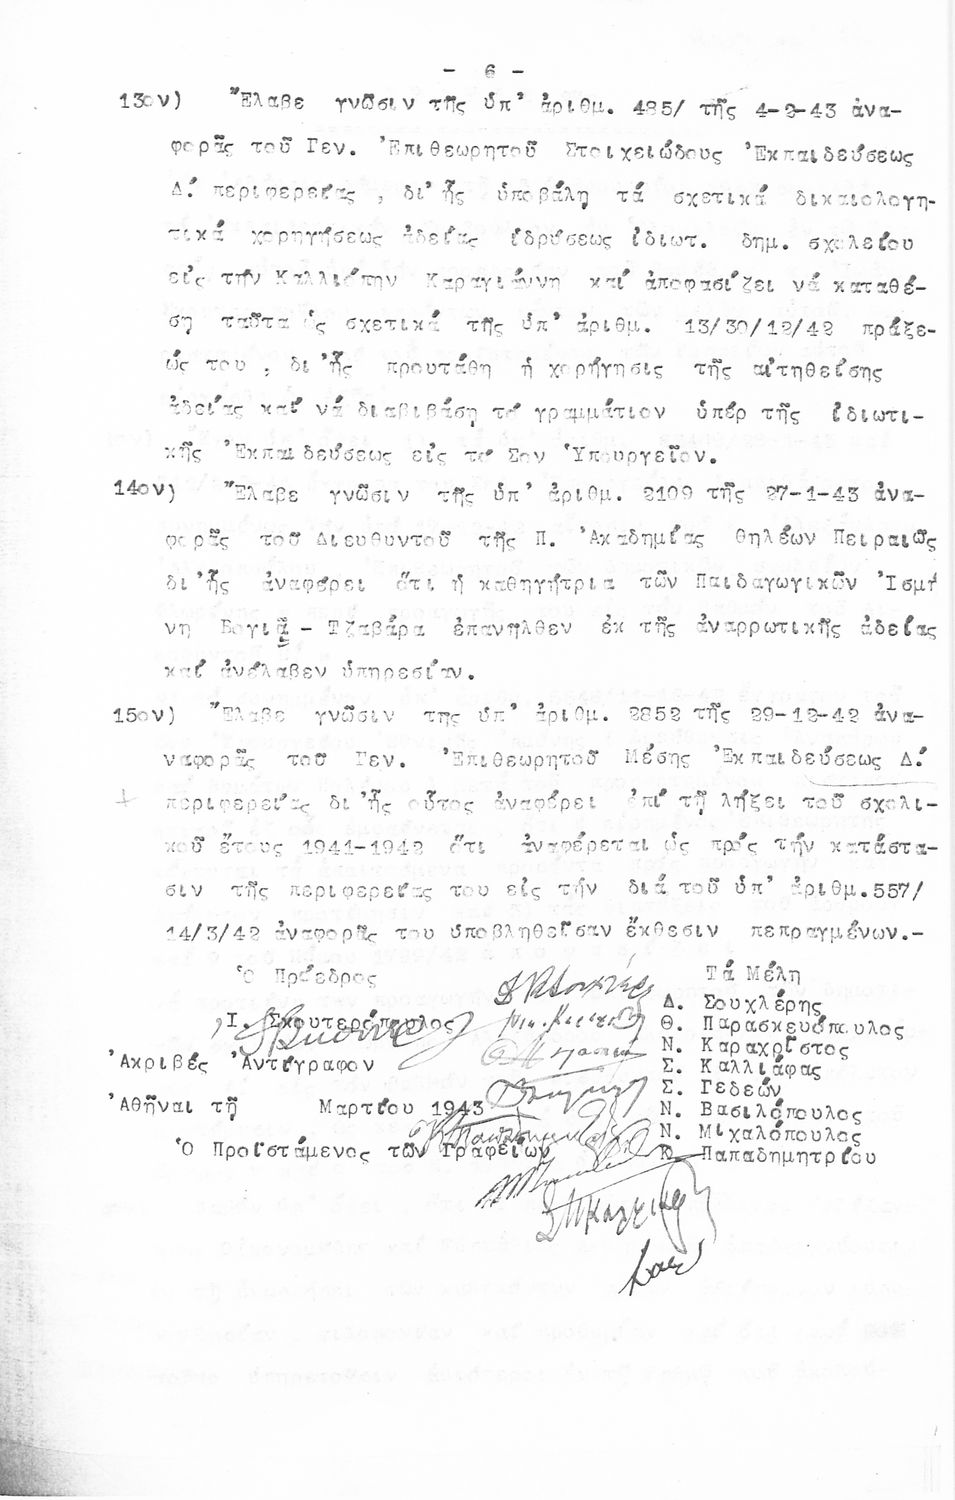 - 6 -
13ον) Ἔλαβε γνῶσιν τῆς ὑπ' ἀριθμ. 485/ τῆς 4-2-43 ἀνα-
φορᾶς τοῦ Γεν. Ἐπιθεωρητοῦ Στοιχειώδους Ἐκπαιδεύσεως
Δ΄ περιφερείας , δι' ἧς ὑποβάλη τά σχετικά δικαιολογη-
τικά χορηγήσεως ἀδείας ἱδρύσεως ἰδιωτ. δημ. σχολείου
εἰς τήν Καλλιόπην Καραγιάννη καί ἀποφασίζει νά καταθέ-
ση ταῦτα ὡς σχετικά τῆς ὑπ' ἀριθμ. 13/30/12/42 πράξε-
ώς του , δι'ἧς προυτάθη ἡ χορήγησις τῆς αἰτηθείσης
ἀδείας καί νά διαβιβάση τό γραμμάτιον ὑπέρ τῆς ἰδιωτι-
κῆς Ἐκπαιδεύσεως εἰς τό Σον Ὑπουργεῖον.
14ον) Ἔλαβε γνῶσιν τῆς ὑπ' ἀριθμ. 2109 τῆς 27-1-43 ἀνα-
φορᾶς τοῦ Διευθυντοῦ τῆς Π. Ἀκαδημίας θηλέων Πειραιῶς
δι'ἧς ἀναφέρει ὅτι ἡ καθηγήτρια τῶν Παιδαγωγικῶν Ἰσμή
νη Βογιᾶ - Τζαβάρα ἐπανῆλθεν ἐκ τῆς ἀναρρωτικῆς ἀδείας
καί ἀνέλαβεν ὑπηρεσίαν.
15ον) Ἔλαβε γνῶσιν της ὑπ' ἀριθμ. 2852 τῆς 29-12-42 ἀνα-
ναφορᾶς τοῦ Γεν. Ἐπιθεωρητοῦ Μέσης Ἐκπαιδεύσεως Δ΄
περιφερείας δι'ἧς οὗτος ἀναφέρει ἐπί τῇ λήξει τοῦ σχολι-
κοῦ ἔτους 1941-1942 ὅτι ἀναφέρεται ὡς πρός τήν κατάστα-
σιν τῆς περιφερείας του εἰς τήν διά τοῦ ὑπ' ἀριθμ.557/
14/3/42 ἀναφορᾶς του ὑποβληθεῖσαν ἔκθεσιν πεπραγμένων.-
Ὁ Πρόεδρος Τά Μέλη
Δ. Σουχλέρης
Ι. Σκουτερόπουλος Θ. Παρασκευόπουλος
Ν. Καραχρίστος
Ἀκριβές Ἀντίγραφον Σ. Καλλιάφας
Σ. Γεδεών
Ἀθῆναι τῇ Μαρτίου 1943 Ν. Βασιλόπουλος
Ν. Μιχαλόπουλος
Ὁ Προϊστάμενος τῶν Γραφείων Κ. Παπαδημητρίου